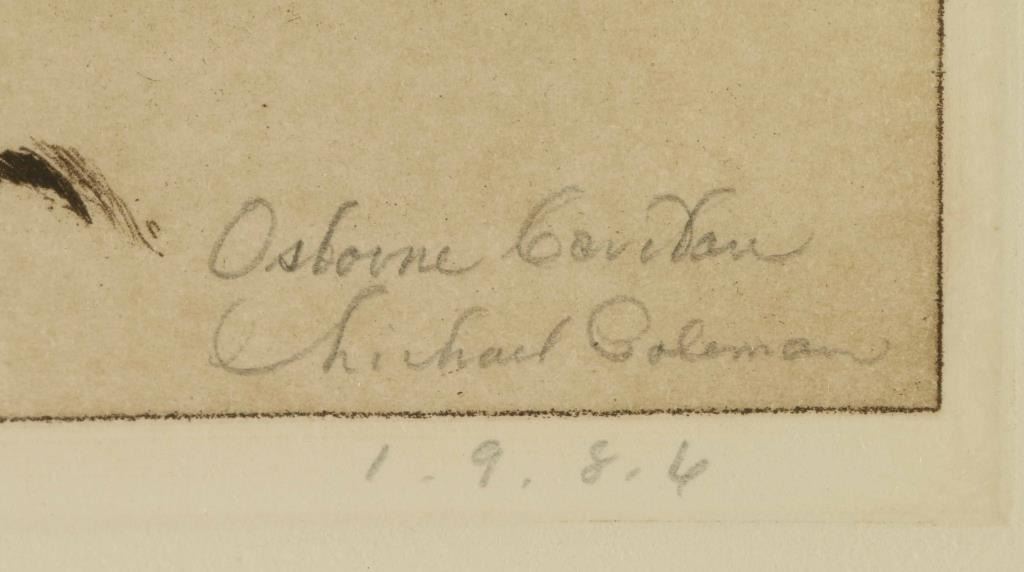 Osborne Caribou
Michael Coleman
1.9.8.4